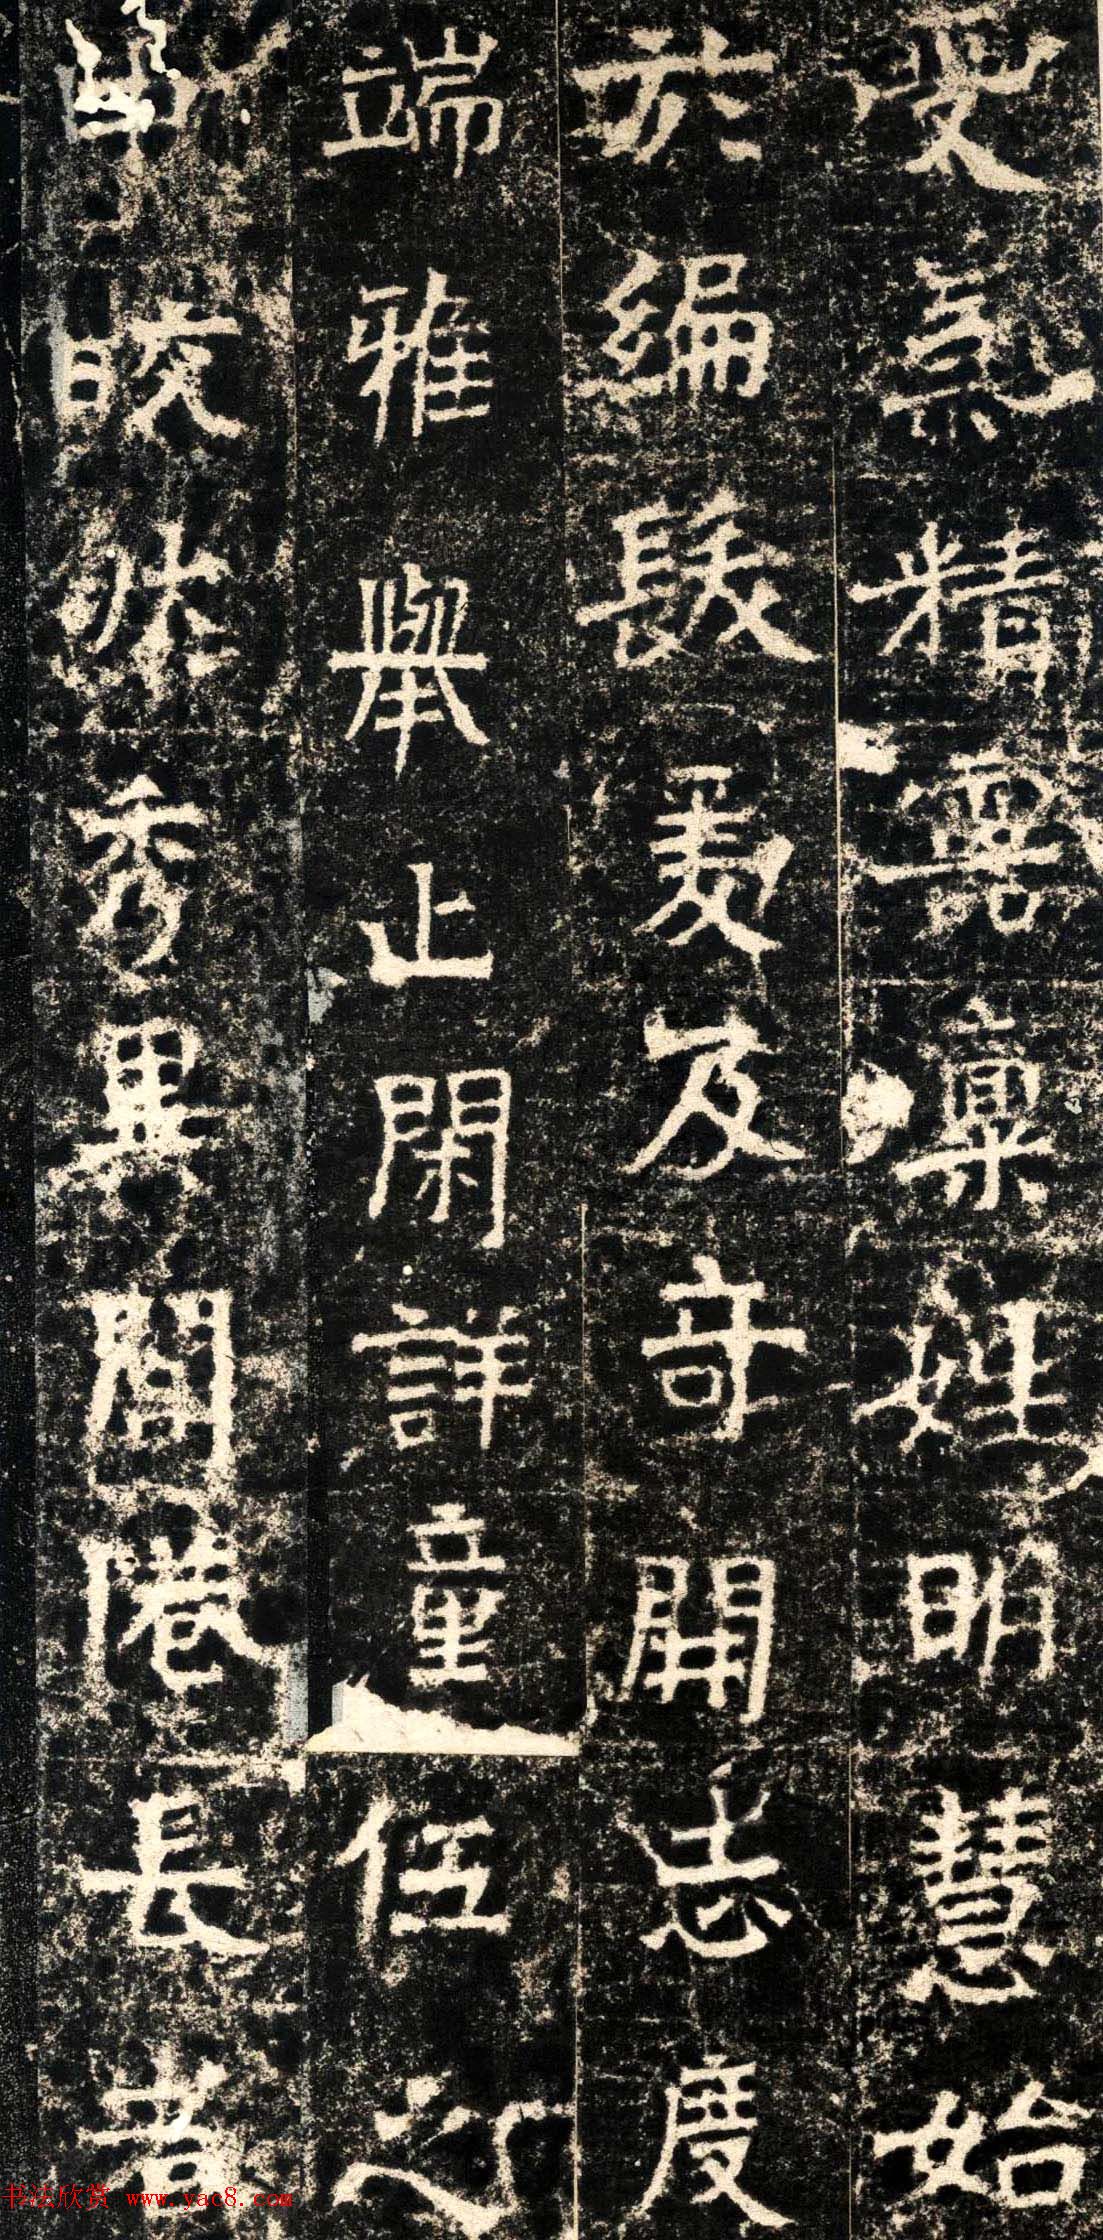 受氣精靈稟姓明慧始
於編髮爰及奇開志度
端雅舉止閑詳童伍之
中皎然秀異閭巷長者
书法欣赏 www.yac8.com